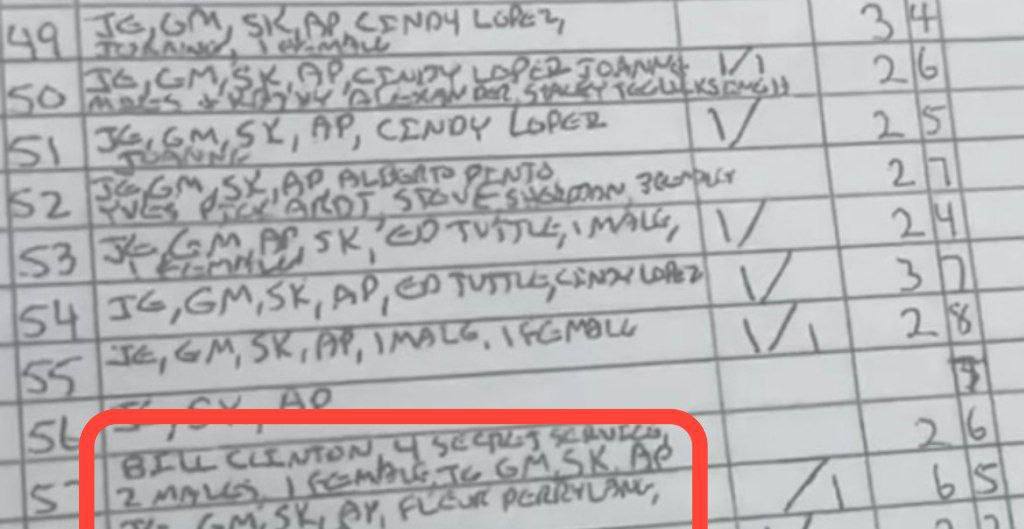 49 JE, GM, SK, AP, CINDY LOPEZ, 3 4
1 FEMALE
50 JE, GM, SK, AP, CINDY LOPEZ JOANNE 1/1 2 6
51 JE, GM, SK, AP, CINDY LOPEZ 1/ 2 5
JOANNE
52 JE, GM, SK, AP ALBERTO PINTO 2 7
YVES PICKARDT, 3 FEMALE
53 JE, GM, AP, SK, ED TUTTLE, 1 MALE, 1/ 2 4
1 FEMALE
54 JE, GM, SK, AP, ED TUTTLE, CINDY LOPEZ 1/ 3 7
55 JE, GM, SK, AP, 1 MALE, 1 FEMALE 1/1 2 8
56 AP 2 6
BILL CLINTON, 4 SECRET SERVICE,
57 2 MALES, 1 FEMALE, JE GM, SK, AP /1 6 5
JE, GM, SK, AP, FLEUR PERRYLANG,